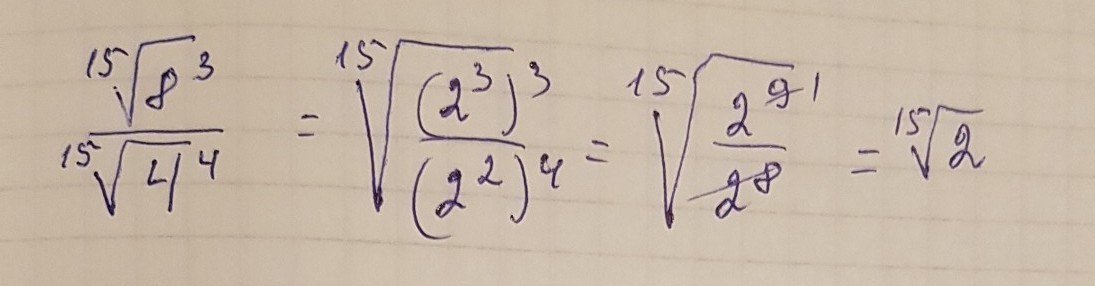 \frac{\sqrt[15]{8^3}}{\sqrt[15]{4^4}} = \sqrt[15]{\frac{(2^3)^3}{(2^2)^4}} = \sqrt[15]{\frac{2^{\cancel{9}1}}{\cancel{2^8}}} = \sqrt[15]{2}